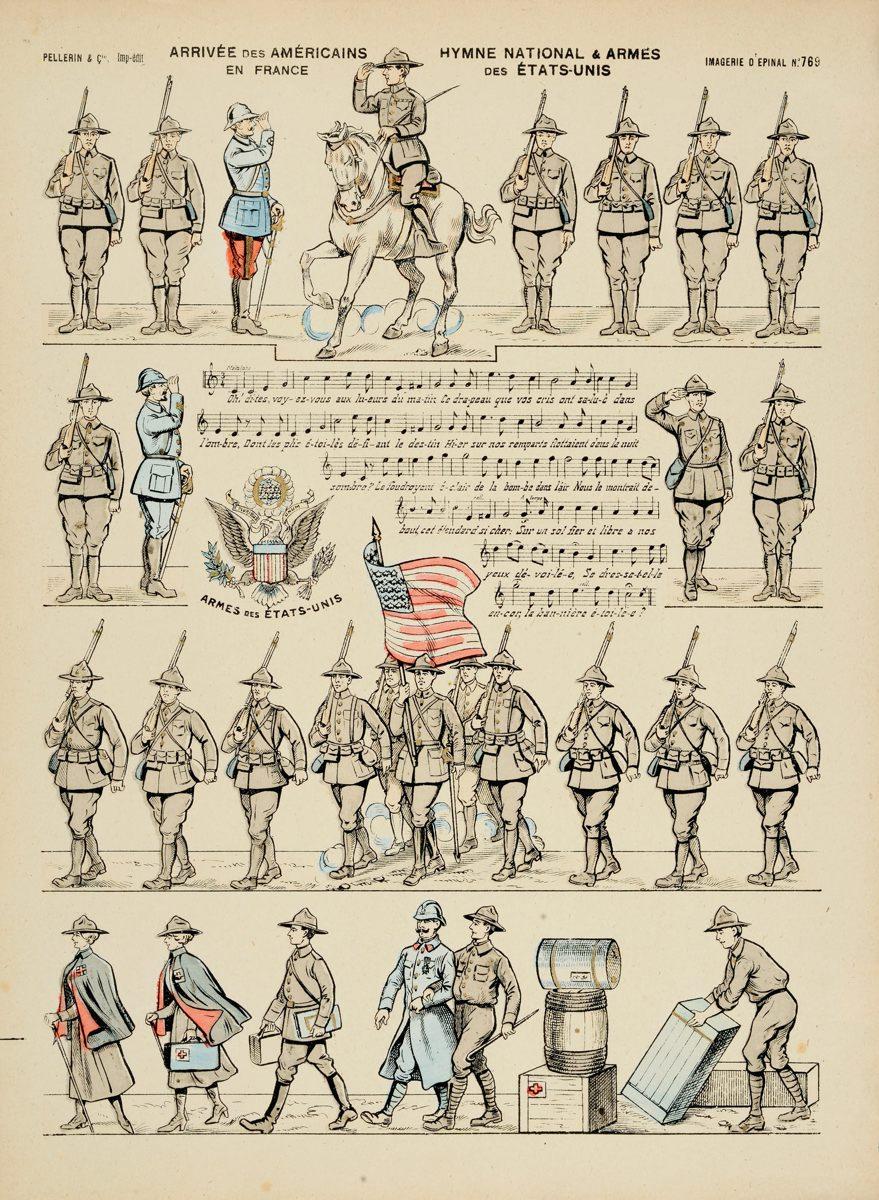 PELLERIN & Cie. Imp-édit
ARRIVÉE DES AMÉRICAINS
EN FRANCE
HYMNE NATIONAL & ARMES
DES ÉTATS-UNIS
IMAGERIE D'ÉPINAL N.º 769
Oh! di-tes, voy-ez-vous aux lu-eurs du ma-tin Ce dra-peau que vos cris ont sa-lu-é dans
l'om-bre, Dont les plis é-toi-lés dé-fi-ant le des-tin Hi-er sur nos remparts flottaient dans la nuit
sombre? Le foudroyant é-clair de la bom-be dans l'air Nous le montrait de-
bout, cet étendard si cher; Sur un sol fier et libre à nos
yeux dé-voi-lé-e, Se dres-se-t-el-le
en-cor, la ban-nière é-toi-lé-e?
ARMES DES ÉTATS-UNIS